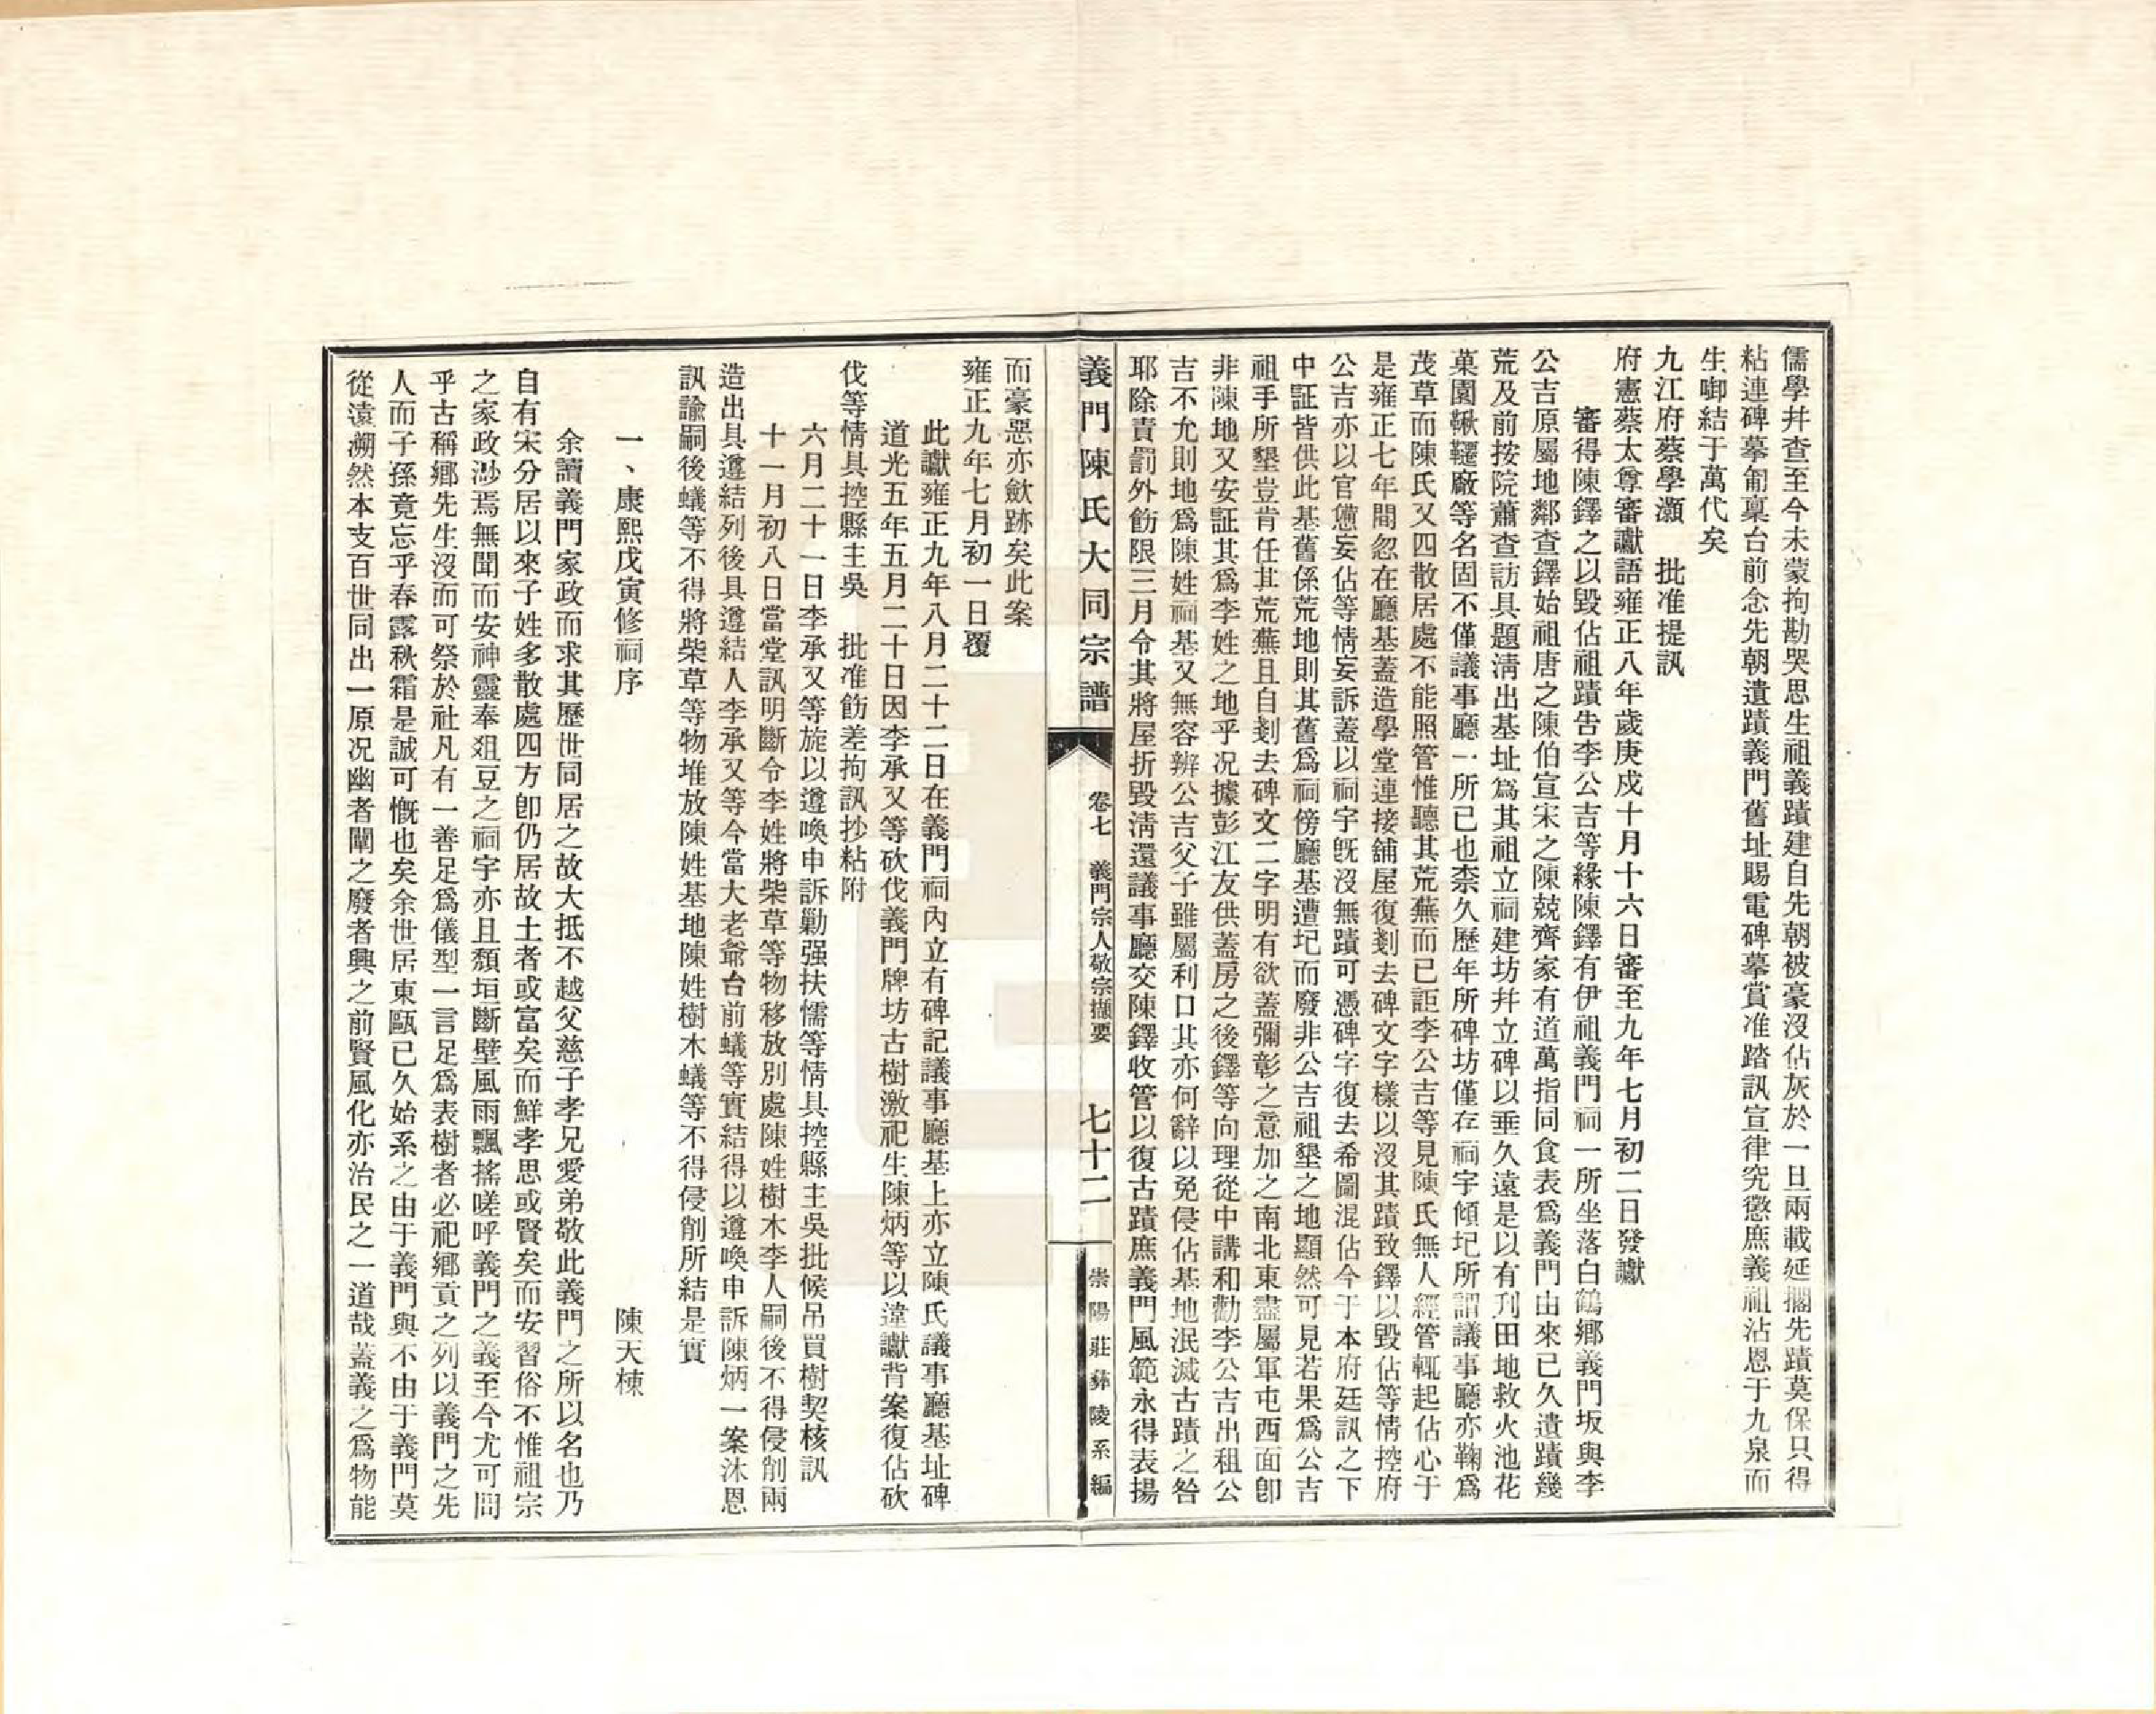 儒學幷查至今未蒙拘勘哭思生祖義蹟建自先朝被豪沒佔灰於一旦兩載延擱先蹟莫保只得
粘連碑摹匍稟台前念先朝遺蹟義門舊址賜電碑摹賞准踏訊宣律究懲庶義祖沾恩于九泉而
生啣結于萬代矣
九江府蔡學灝　批准提訊
府憲蔡太尊審讞語雍正八年歲庚戍十月十六日審至九年七月初二日發讞
審得陳鐸之以毀佔祖蹟告李公吉等緣陳鐸有伊祖義門祠一所坐落白鶴鄉義門坂與李
公吉原屬地鄰查鐸始祖唐之陳伯宣宋之陳兢齊家有道萬指同食表爲義門由來已久遺蹟幾
荒及前按院蕭查訪具題淸出基址爲其祖立祠建坊幷立碑以垂久遠是以有刋田地救火池花
菓園鞦韆廠等名固不僅議事廳一所已也柰久歷年所碑坊僅存祠宇傾圮所謂議事廳亦鞠爲
茂草而陳氏又四散居處不能照管惟聽其荒蕪而已詎李公吉等見陳氏無人經管輒起佔心于
是雍正七年間忽在廳基蓋造學堂連接舖屋復剗去碑文字樣以沒其蹟致鐸以毀佔等情控府
公吉亦以官憊妄佔等情妄訴蓋以祠宇旣沒無蹟可憑碑字復去希圖混佔今于本府廷訊之下
中証皆供此基舊係荒地則其舊爲祠傍廳基遭圮而廢非公吉祖墾之地顯然可見若果爲公吉
祖手所墾豈肯任其荒蕪且自剗去碑文二字明有欲蓋彌彰之意加之南北東盡屬軍屯西面卽
非陳地又安証其爲李姓之地乎况據彭江友供蓋房之後鐸等向理從中講和勸李公吉出租公
吉不允則地爲陳姓祠基又無容辨公吉父子雖屬利口其亦何辭以免侵佔基地泯滅古蹟之咎
耶除責罰外飭限三月令其將屋折毀淸還議事廳交陳鐸收管以復古蹟庶義門風範永得表揚
義門陳氏大同宗譜
卷七　義門宗人敬宗擷要　七十二
崇陽莊彝陵系編
而豪惡亦歛跡矣此案
雍正九年七月初一日覆
此讞雍正九年八月二十二日在義門祠內立有碑記議事廳基上亦立陳氏議事廳基址碑
道光五年五月二十日因李承又等砍伐義門牌坊古樹激祀生陳炳等以違讞背案復佔砍
伐等情具控縣主吳　批准飭差拘訊抄粘附
六月二十一日李承又等旋以遵喚申訴勦强扶懦等情具控縣主吳批候吊買樹契核訊
十一月初八日當堂訊明斷令李姓將柴草等物移放別處陳姓樹木李人嗣後不得侵削兩
造出具遵結列後具遵結人李承又等今當大老爺台前蟻等實結得以遵喚申訴陳炳一案沐恩
訊諭嗣後蟻等不得將柴草等物堆放陳姓基地陳姓樹木蟻等不得侵削所結是實
一、康熙戊寅修祠序　陳天棟
余讀義門家政而求其歷世同居之故大抵不越父慈子孝兄愛弟敬此義門之所以名也乃
自有宋分居以來子姓多散處四方卽仍居故土者或富矣而鮮孝思或賢矣而安習俗不惟祖宗
之家政渺焉無聞而安神靈奉俎豆之祠宇亦且頹垣斷壁風雨飄搖嗟呼義門之義至今尤可問
乎古稱鄉先生沒而可祭於社凡有一善足爲儀型一言足爲表樹者必祀鄉貢之列以義門之先
人而子孫竟忘乎春露秋霜是誠可慨也矣余世居東甌已久始系之由于義門與不由于義門莫
從遠溯然本支百世同出一原况幽者闡之廢者興之前賢風化亦治民之一道哉蓋義之爲物能